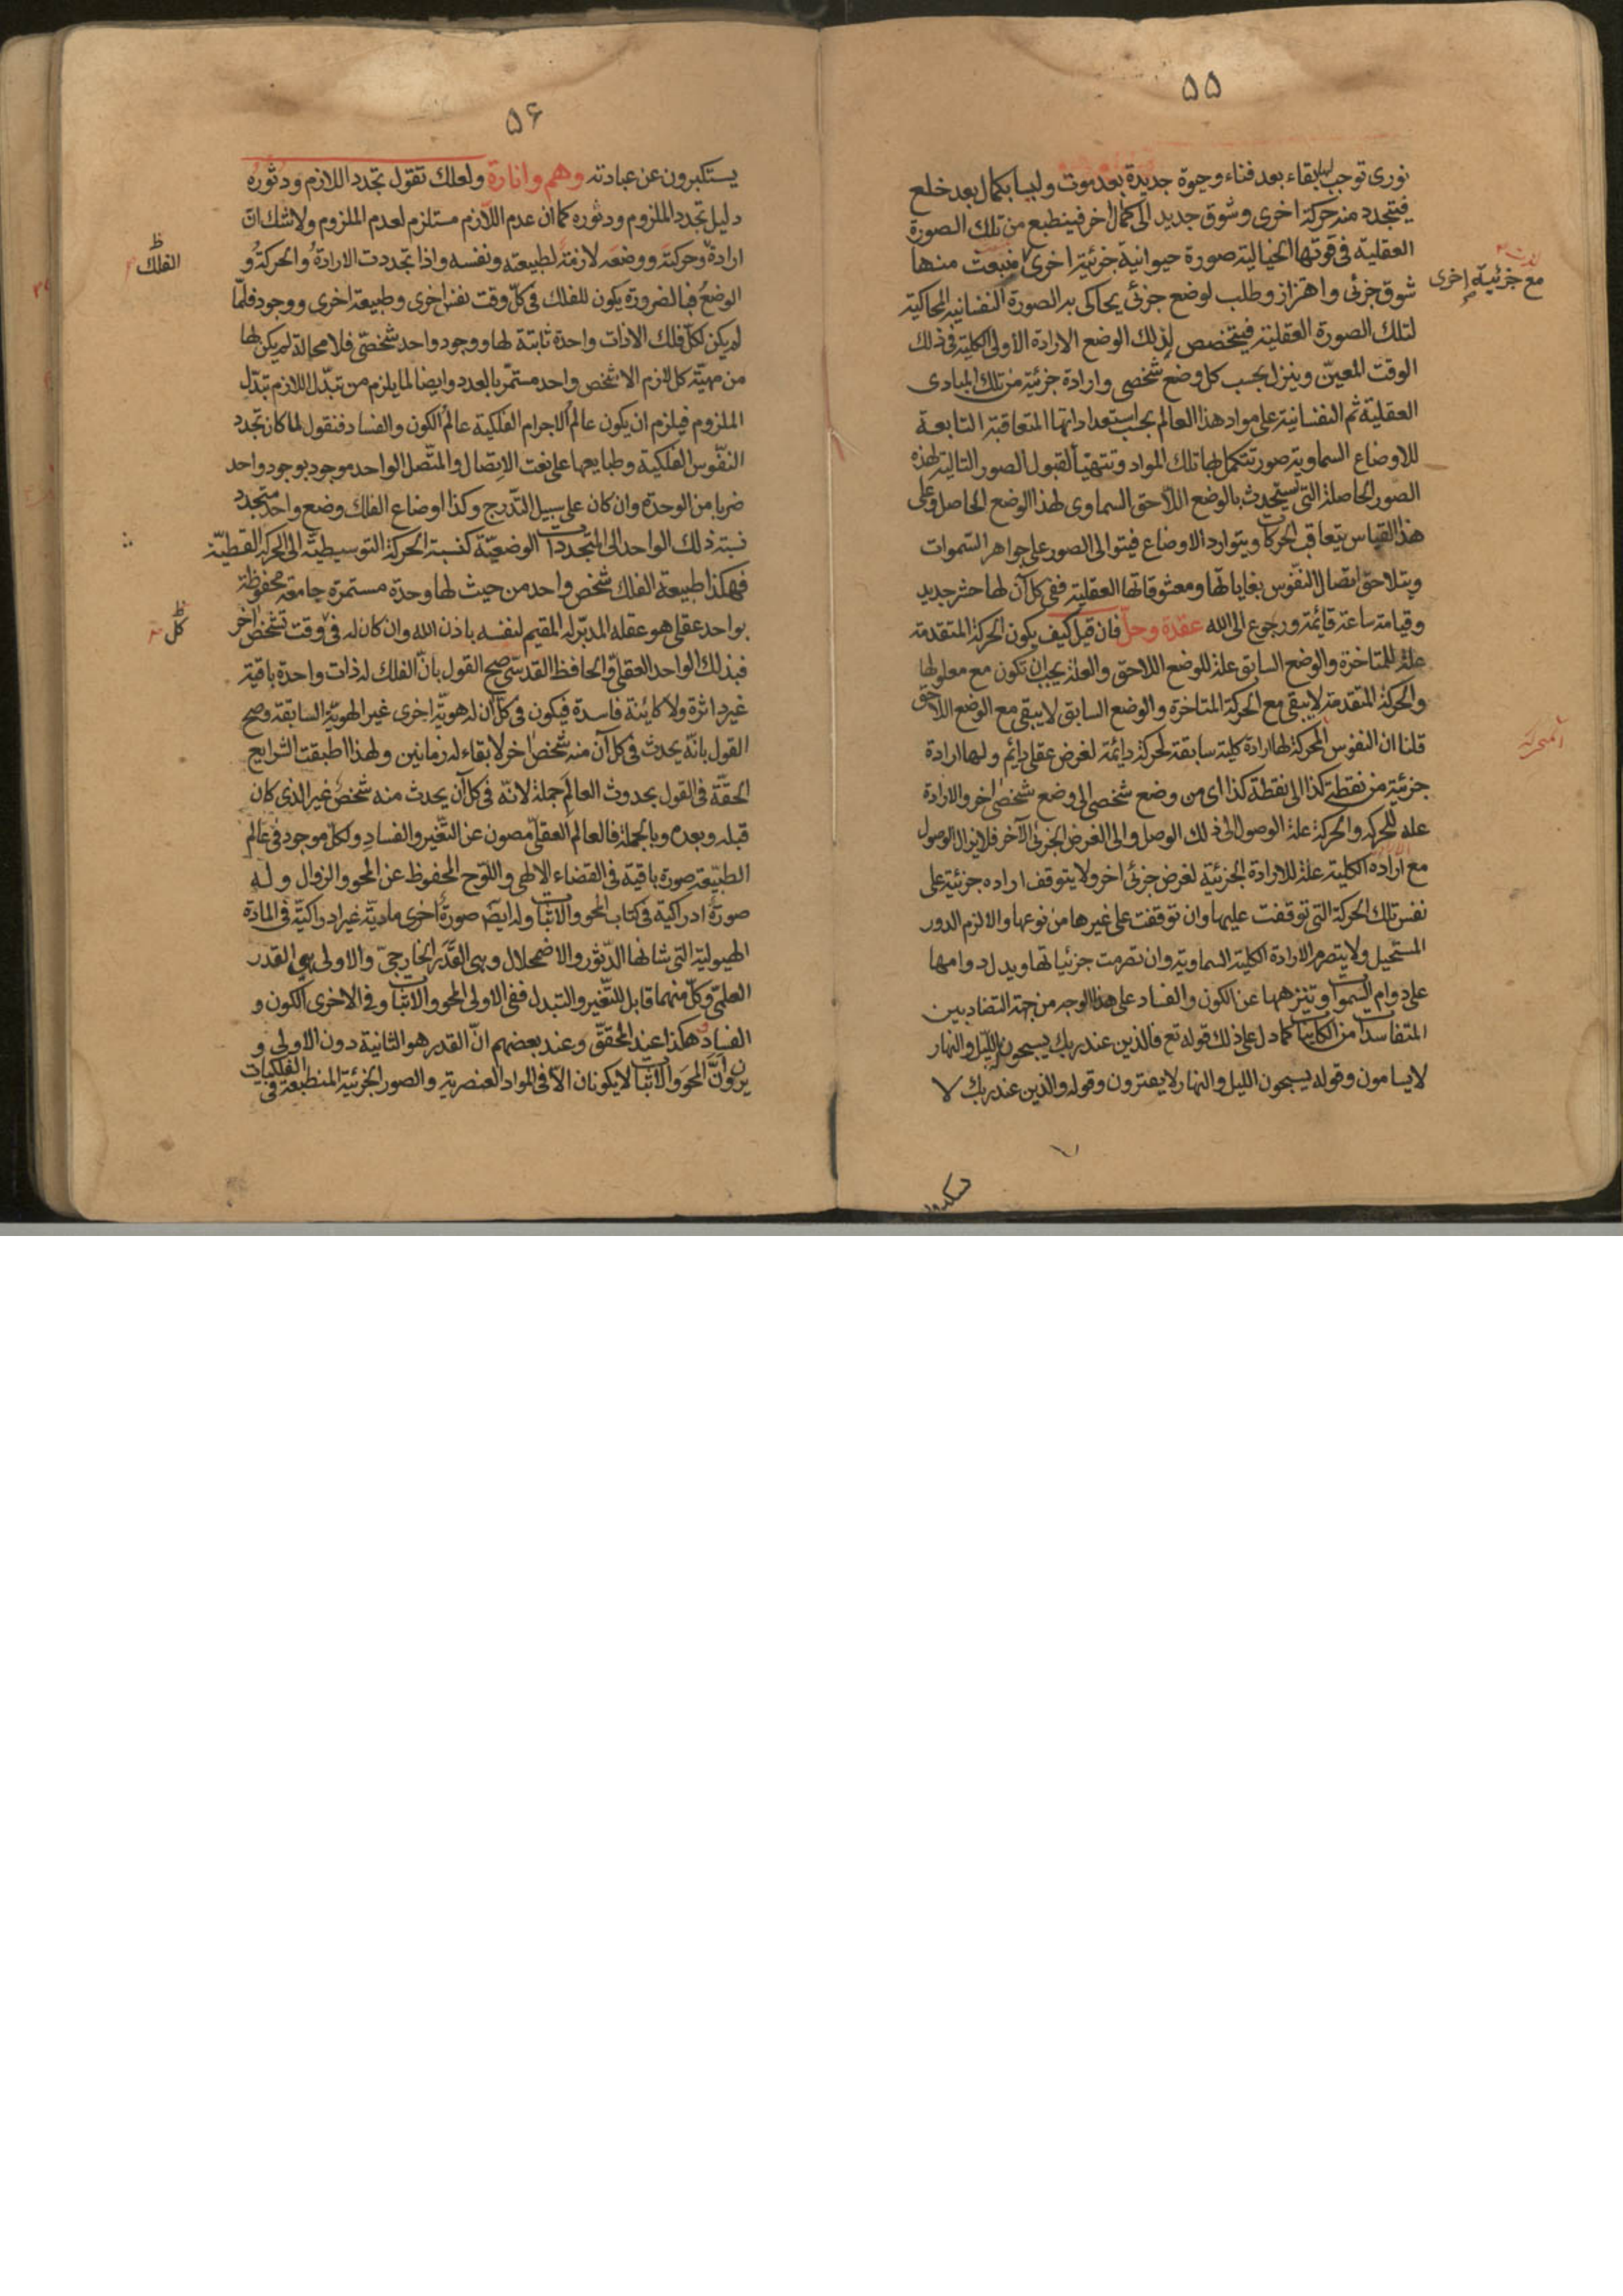 ۵۵
نوری توجب لها بقاء بعد فناء وحیوة جدیدة بعد موت ولبسا بکمال بعد خلع
فیتجدد منه حرکة اخری وشوق جدید الی کمال اخر فینطبع من تلک الصورة
العقلیة فی قوتها الخیالیة صورة حیوانیة جزئیة اخری فینبعث منها
شوق جزئی واهتزاز وطلب لوضع جزئی یحاکی به الصورة النفسانیة المحاکیة
لتلک الصورة العقلیة فیتخصص لذلک الوضع الارادة الاولی الکلیة فی ذلک
الوقت المعیّن وینزل بحسب کل وضع شخصی وارادة جزئیة من تلک المبادی
العقلیة ثم النفسانیة علی مواد هذا العالم بحسب استعداداتها المتعاقبة التابعة
للاوضاع السماویة صور تتکمل بها تلک المواد وتتهیّأ لقبول الصور التالیة لهذه
الصور الحاصلة التی تستحدث بالوضع اللاحق السماوی لهذا الوضع الحاصل وعلی
هذا القیاس یتعاقب الحرکات ویتوارد الاوضاع فیتوالی الصور علی جواهر السّموات
ویتلاحق اتصال النفوس بغایاتها ومعشوقاتها العقلیة ففی کل آن لها حشر جدید
وقیامة ساعة قایمة ورجوع الی الله عقدة وحلّ فان قیل کیف یکون الحرکة المتقدمة
علة للمتاخرة والوضع السابق علة للوضع اللاحق والعلة یجب ان تکون مع معلولها
والحرکة المتقدمة لا یبقی مع الحرکة المتاخرة والوضع السابق لا یبقی مع الوضع اللاحق
قلنا ان النفوس المحرکة لها ارادة کلیة سابقة لحرکة دایمة لغرض عقلی دایم ولها ارادة
جزئیة من نقطة کذا الی نقطة کذا ای من وضع شخصی الی وضع شخصی اخر والارادة
علة للحرکة والحرکة علة الوصول الی ذلک الوصل والی الغرض الجزئی الآخر فلا یزال الوصول
مع ارادة الکلیة علة للارادة الجزئیة لغرض جزئی اخر ولا یتوقف اراده جزئیة علی
نفس تلک الحرکة التی توقفت علیها وان توقفت علی غیرها من نوعها والا لزم الدور
المستحیل ولا یتصرم الارادة الکلیة السماویة وان تصرمت جزئیاتها ویدل دوامها
علی دوام السموات وتنزهها عن الکون والفساد علی هذا الوجه من جهة التضاد بین
المتفاسدات من الکائنات کما دل علی ذلک قوله تع فالذین عند ربک یسبحون باللیل والنهار
لا یسامون وقوله یسبحون اللیل والنهار لا یفترون وقوله والذین عند ربک لا
مع جزئیة اخری
المتحرکة
۵۶
یستکبرون عن عبادته وهم وانارة ولعلک تقول تجدد اللازم ودثوره
دلیل تجدد الملزوم ودثوره کما ان عدم اللازم مستلزم لعدم الملزوم ولا شک ان
ارادة وحرکته ووضعه لازمة لطبیعته ونفسه واذا تجددت الارادة والحرکة و
الوضع فبالضرورة یکون للفلک فی کلّ وقت نفس اخری وطبیعة اخری ووجود فلمّا
لم یکن لکل فلک الا ذات واحدة ثابتة لها ووجود واحد شخصی فلا محالة لم یکن لها
من مهیّة کل لازم الا شخص واحد مستمرّ بالعدد وایضا لما یلزم من تبدّل اللازم تبدّل
الملزوم فیلزم ان یکون عالم الاجرام الفلکیة عالم الکون والفساد فنقول لما کان تجدد
النفوس الفلکیة وطبایعها علی نعت الاتصال والمتّصل الواحد موجود بوجود واحد
ضربا من الوحدة وان کان علی سبیل التدرج وکذا اوضاع الفلک وضع واحد متجدد
نسبة ذلک الواحد الی المتجددات الوضعیّة کنسبة الحرکة التوسیطیّة الی الحرکة القطیّة
فهکذا طبیعة الفلک شخص واحد من حیث لها وحدة مستمرة جامعة محفوظة
بواحد عقلی هو عقله المدبّر له المقیم لنفسه باذن الله وان کان له فی وقت تشخص اخر
فبذلک الواحد العقلی والحافظ القدسّی صح القول بانّ الفلک له ذات واحدة باقیة
غیر داثرة ولا کاینة فاسدة فیکون فی کلّ آن له هویّة اخری غیر الهویّة السابقة وصح
القول بانّه یحدث فی کل آن منه شخص اخر لا بقاء له زمانین ولهذا اطبقت الشرایع
الحقّة فی القول بحدوث العالم جملة لانّه فی کل آن یحدث منه شخص غیر الذی کان
قبله وبعده وبالجملة فالعالم العقلی مصون عن التّغیر والفساد ولکلّ موجود فی عالم
الطبیعة صورة باقیة فی القضاء الالهی واللوح المحفوظ عن المحو والزوال وله
صورة ادراکیة فی کتاب المحو والاثبات وله ایضا صورة اخری مادیّة غیر ادراکیّة فی المادة
الهیولیة التی شانها الدّثور والاضمحلال وهی القدر الخارجیّ والاولی هی القدر
العلمیّ وکلّ منهما قابل للتّغیر والتبدل ففی الاولی المحو والاثبات وفی الاخری الکون و
الفساد وهکذا عند المحقّق وعند بعضهم انّ القدر هو الثانیة دون الاولی و
یرون انّ المحو والاثبات لا یکونان الا فی المواد العنصریة والصور الجزئیة المنطبعة فی الفلکیات
الفلک
کل